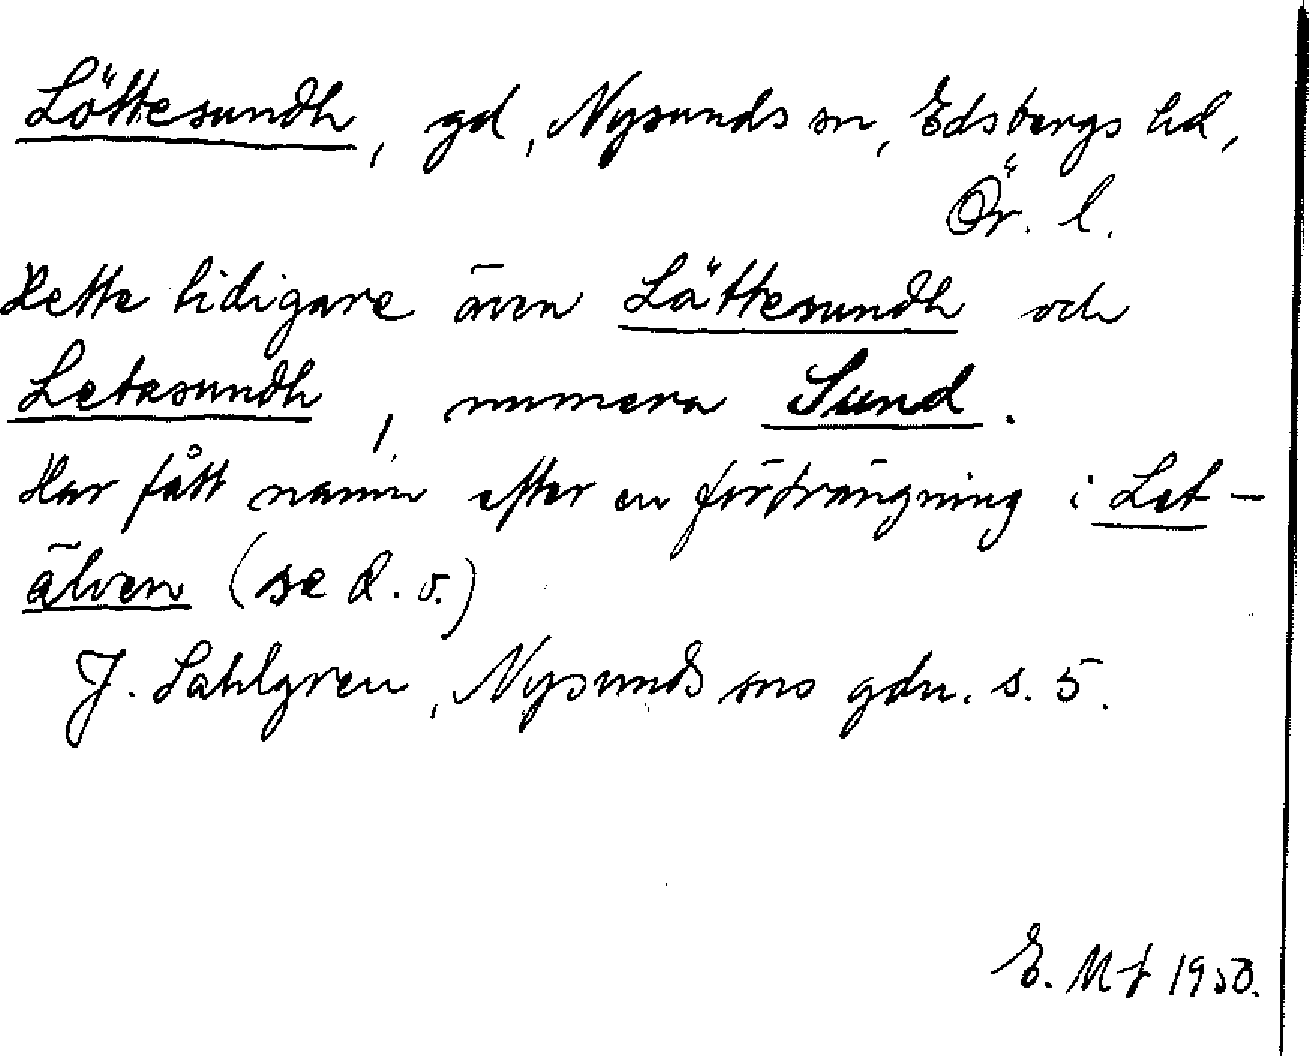 Löttesundh, gd, Nysunds sn, Edsbergs hd,
Ör. l.
Hette tidigare även Lättesundh och
Letasundh, numera Sund.
Har fått namn efter en förträngning i Let-
älven (se d. o.)
J. Sahlgren, Nysunds sns gdn. s. 5.
E. Mf 1950.